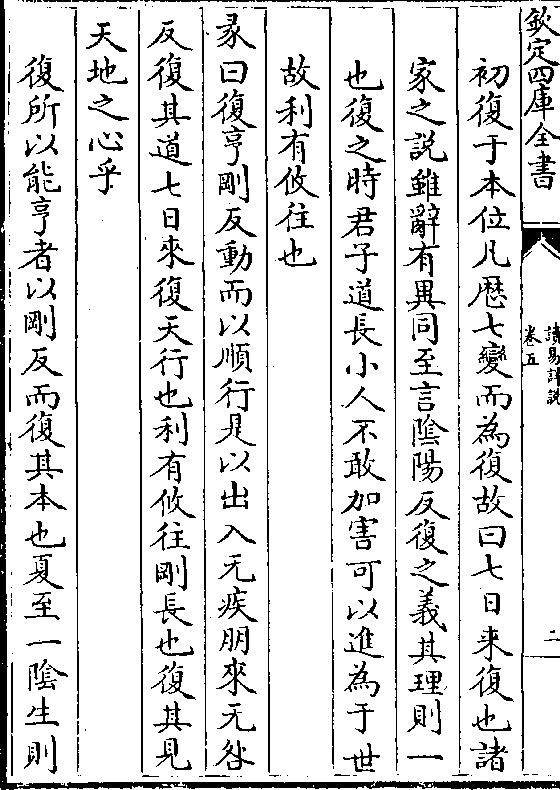 欽定四庫全書
讀易詳說
卷五
二
初復于本位凡歴七變而為復故曰七日来復也諸
家之説雖辭有異同至言隂陽反復之義其理則一
也復之時君子道長小人不敢加害可以進為于世
故利有攸往也
彖曰復亨剛反動而以順行是以出入无疾朋來无咎
反復其道七日來復天行也利有攸往剛長也復其見
天地之心乎
復所以能亨者以剛反而復其本也夏至一隂生則